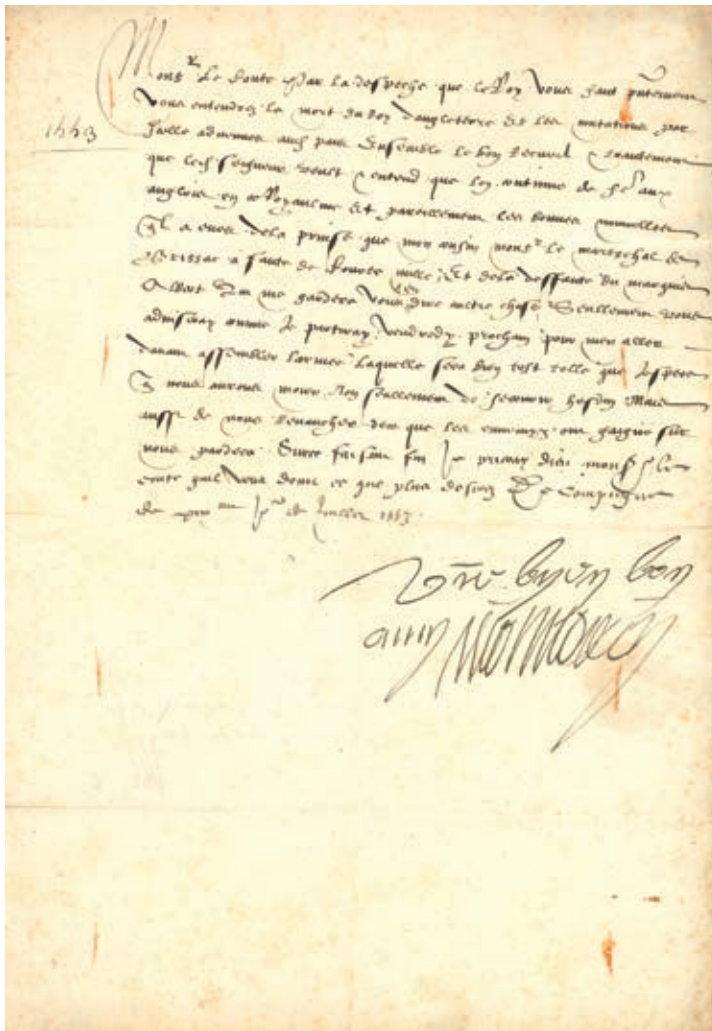 Monsr Le Conte Par la despeche que le Roy vous faict pntement
vous entendrez la mort du Roy dangleterre Et les mutations par
1553
Ensemble le bon Recueil &
que led. seigneur veult & entend que lon continue de fe aux
anglois en ce Royaulme Et pareillement les bonnes nouvelles
ql a eues de la prinse que mon cousin monsr le mareschal de
Brissac a faicte de Et de la deffaicte du marquis
Albert vous dire autre chose Seullement vous
adviseray comme Je partiray vendredy prochain pour men aller
davant assembler larmee Laquelle sera bien tost telle que Jespere
q nous aurons moien Non seullement de secourir hesdin Mais
aussi de nous revancher de ce que les ennemys ont gaigne sur
nous Surce faisant fin Je prieray dieu monsr le
conte quil vous doinct ce que plus desirez De Compiegne
de Juillet 1553
Vre byen bon
amy Montmorency